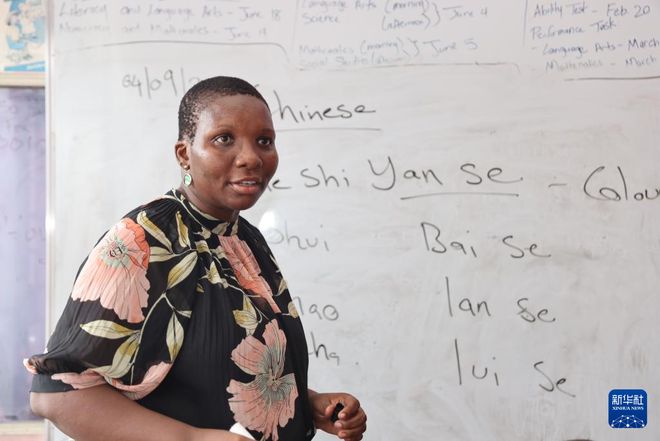 Literacy and Language Arts - June 18
and Mathematics - June 19
Language Arts (morning)
Science (afternoon) } June 4
Mathematics (morning) } June 5
Ability Task - Feb 20
Performance Task
- Language Arts - March
- Mathematics - March
04/09/
Chinese
shi Yan se - Colou
hui Bai se
hao lan se
cha. lui se
新华社
XINHUA NEWS